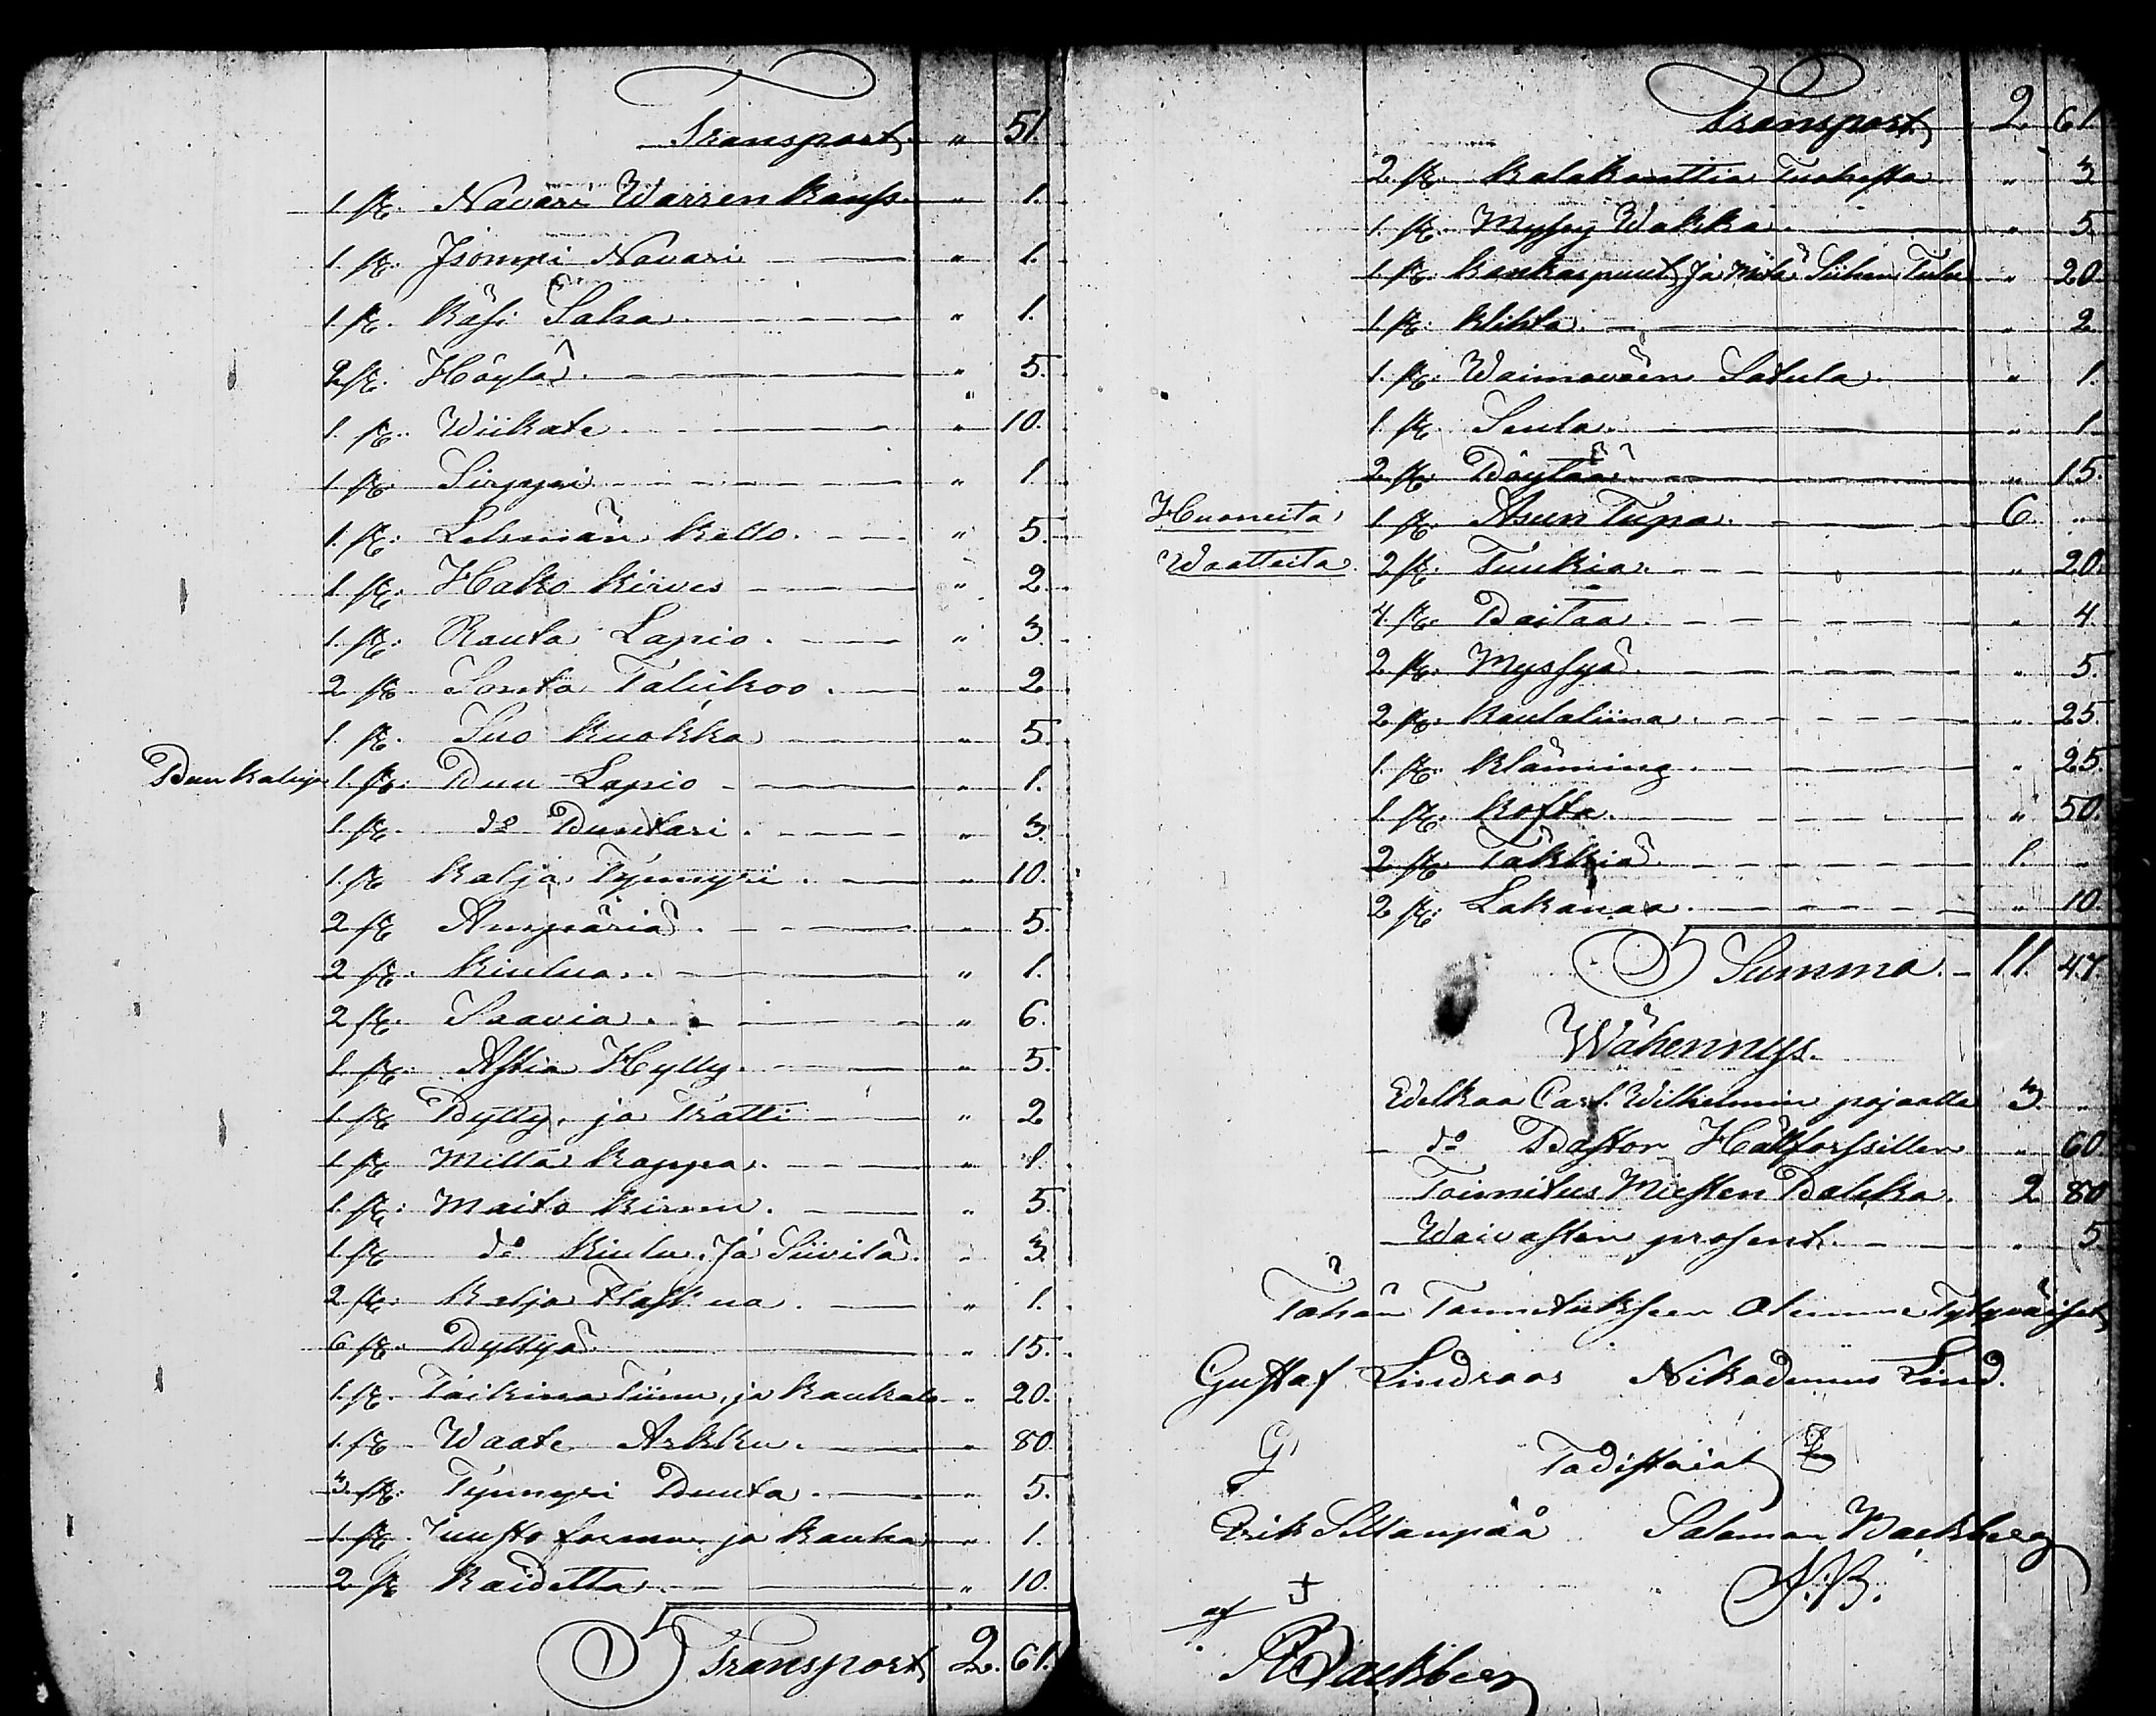 Transport „ 51.
1. st. Navari Warren kanss „ 1.
1. st. Isompi Navari „ 1.
1. st. Käsi Saha „ 1.
2 st. Höylä „ 5.
1. st. Wiikate „ 10.
1 st. Sirppi „ 1
1. st. Lehmän kello „ 5.
1. st. Hako kirves „ 2
1. st. Rauta Lapio „ 3.
2 st. Sonta Talikoo „ 2
1. st. Suo kuokka „ 5.
Puu kaluja 1. st. Puu Lapio „ 1.
1. st. do Puntari „ 3.
1. st. Kalja Tynnyri „ 10.
2 st. Ämpäriä „ 5.
2 st. Kiulua „ 1.
2 st. Saavia „ 6.
1. st. Astia Hylly „ 5.
1. st. Pytty, ja Tratti „ 2
1. st. Mitta kappa „ 1
1. st. Maito kirnu „ 5.
1. st. do kiulu Ja Siivilä „ 3.
2 st. Kalja Flaskua „ 1.
6 st. Pyttyä „ 15.
1. st. Taikina Tiinu, ja kaukalo „ 20.
1. st. Waate Arkku „ 80.
3 st. Tynnyri Puuta „ 5.
1. st. Juusto formu ja kauha „ 1.
2 st. Kaidetta „ 10.
Transport 2. 61.
Transport 2. 61.
2. st. Kalakonttia Tuohesta „ 3
1. st. Myssy Wakka „ 5.
1. st. Kankaspuut Ja Mitä Siihen Tule „ 20
1. st. Klihta „ 2
1. st. Waimoväen Satula „ 1.
1 st. Seula „ 1
2 st. Pöytää „ 15.
Huoneita 1 st. Asun Tupa 6 „
Waatteita 2 st. Turkia „ 20.
4. st. Paitaa „ 4
2 st. Myssyä „ 5.
2 st. Kaulaliina „ 25.
1. st. Klänning „ 25.
1 st. Kofta „ 50.
2 st. Täkkiä 1. „
2 st. Lakanaa „ 10.
Summa 11. 47.
Wähennys.
Edelkaa Carl Wilhelmin pojaalle 3. „
do Pastor Hällforssillen „ 60.
Toimitus Miesten Palkka 2 80
Waivasten prosent „ 5.
Tähän Toimitukseen Olemme Tytyväiset
Gustaf Lindroos Nikodemus Lind.
G
Todistavat
Erik Sillanpää Saloman Backberg
S. B.